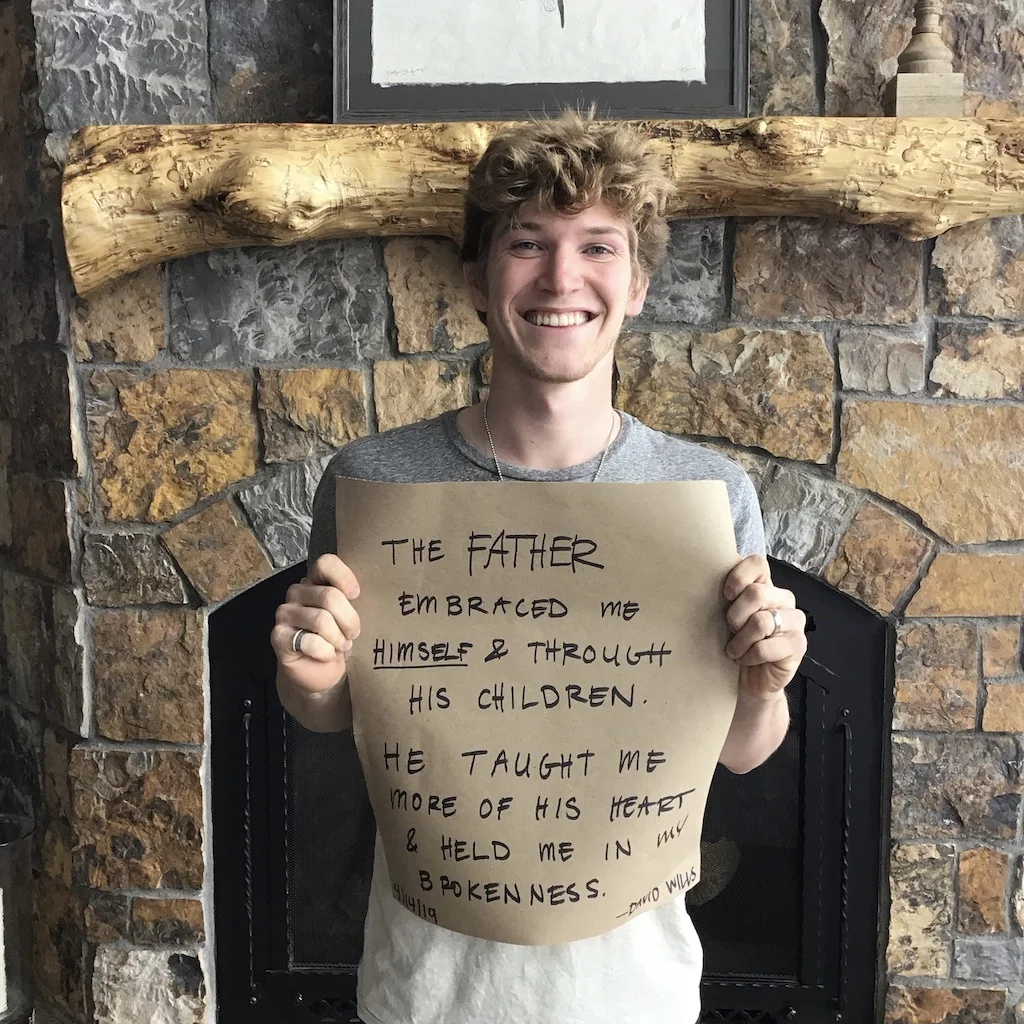 THE FATHER
EMBRACED ME
HIMSELF & THROUGH
HIS CHILDREN.
HE TAUGHT ME
MORE OF HIS HEART
& HELD ME IN MY
BROKENNESS.
4/14/19
-DAVID WILLS